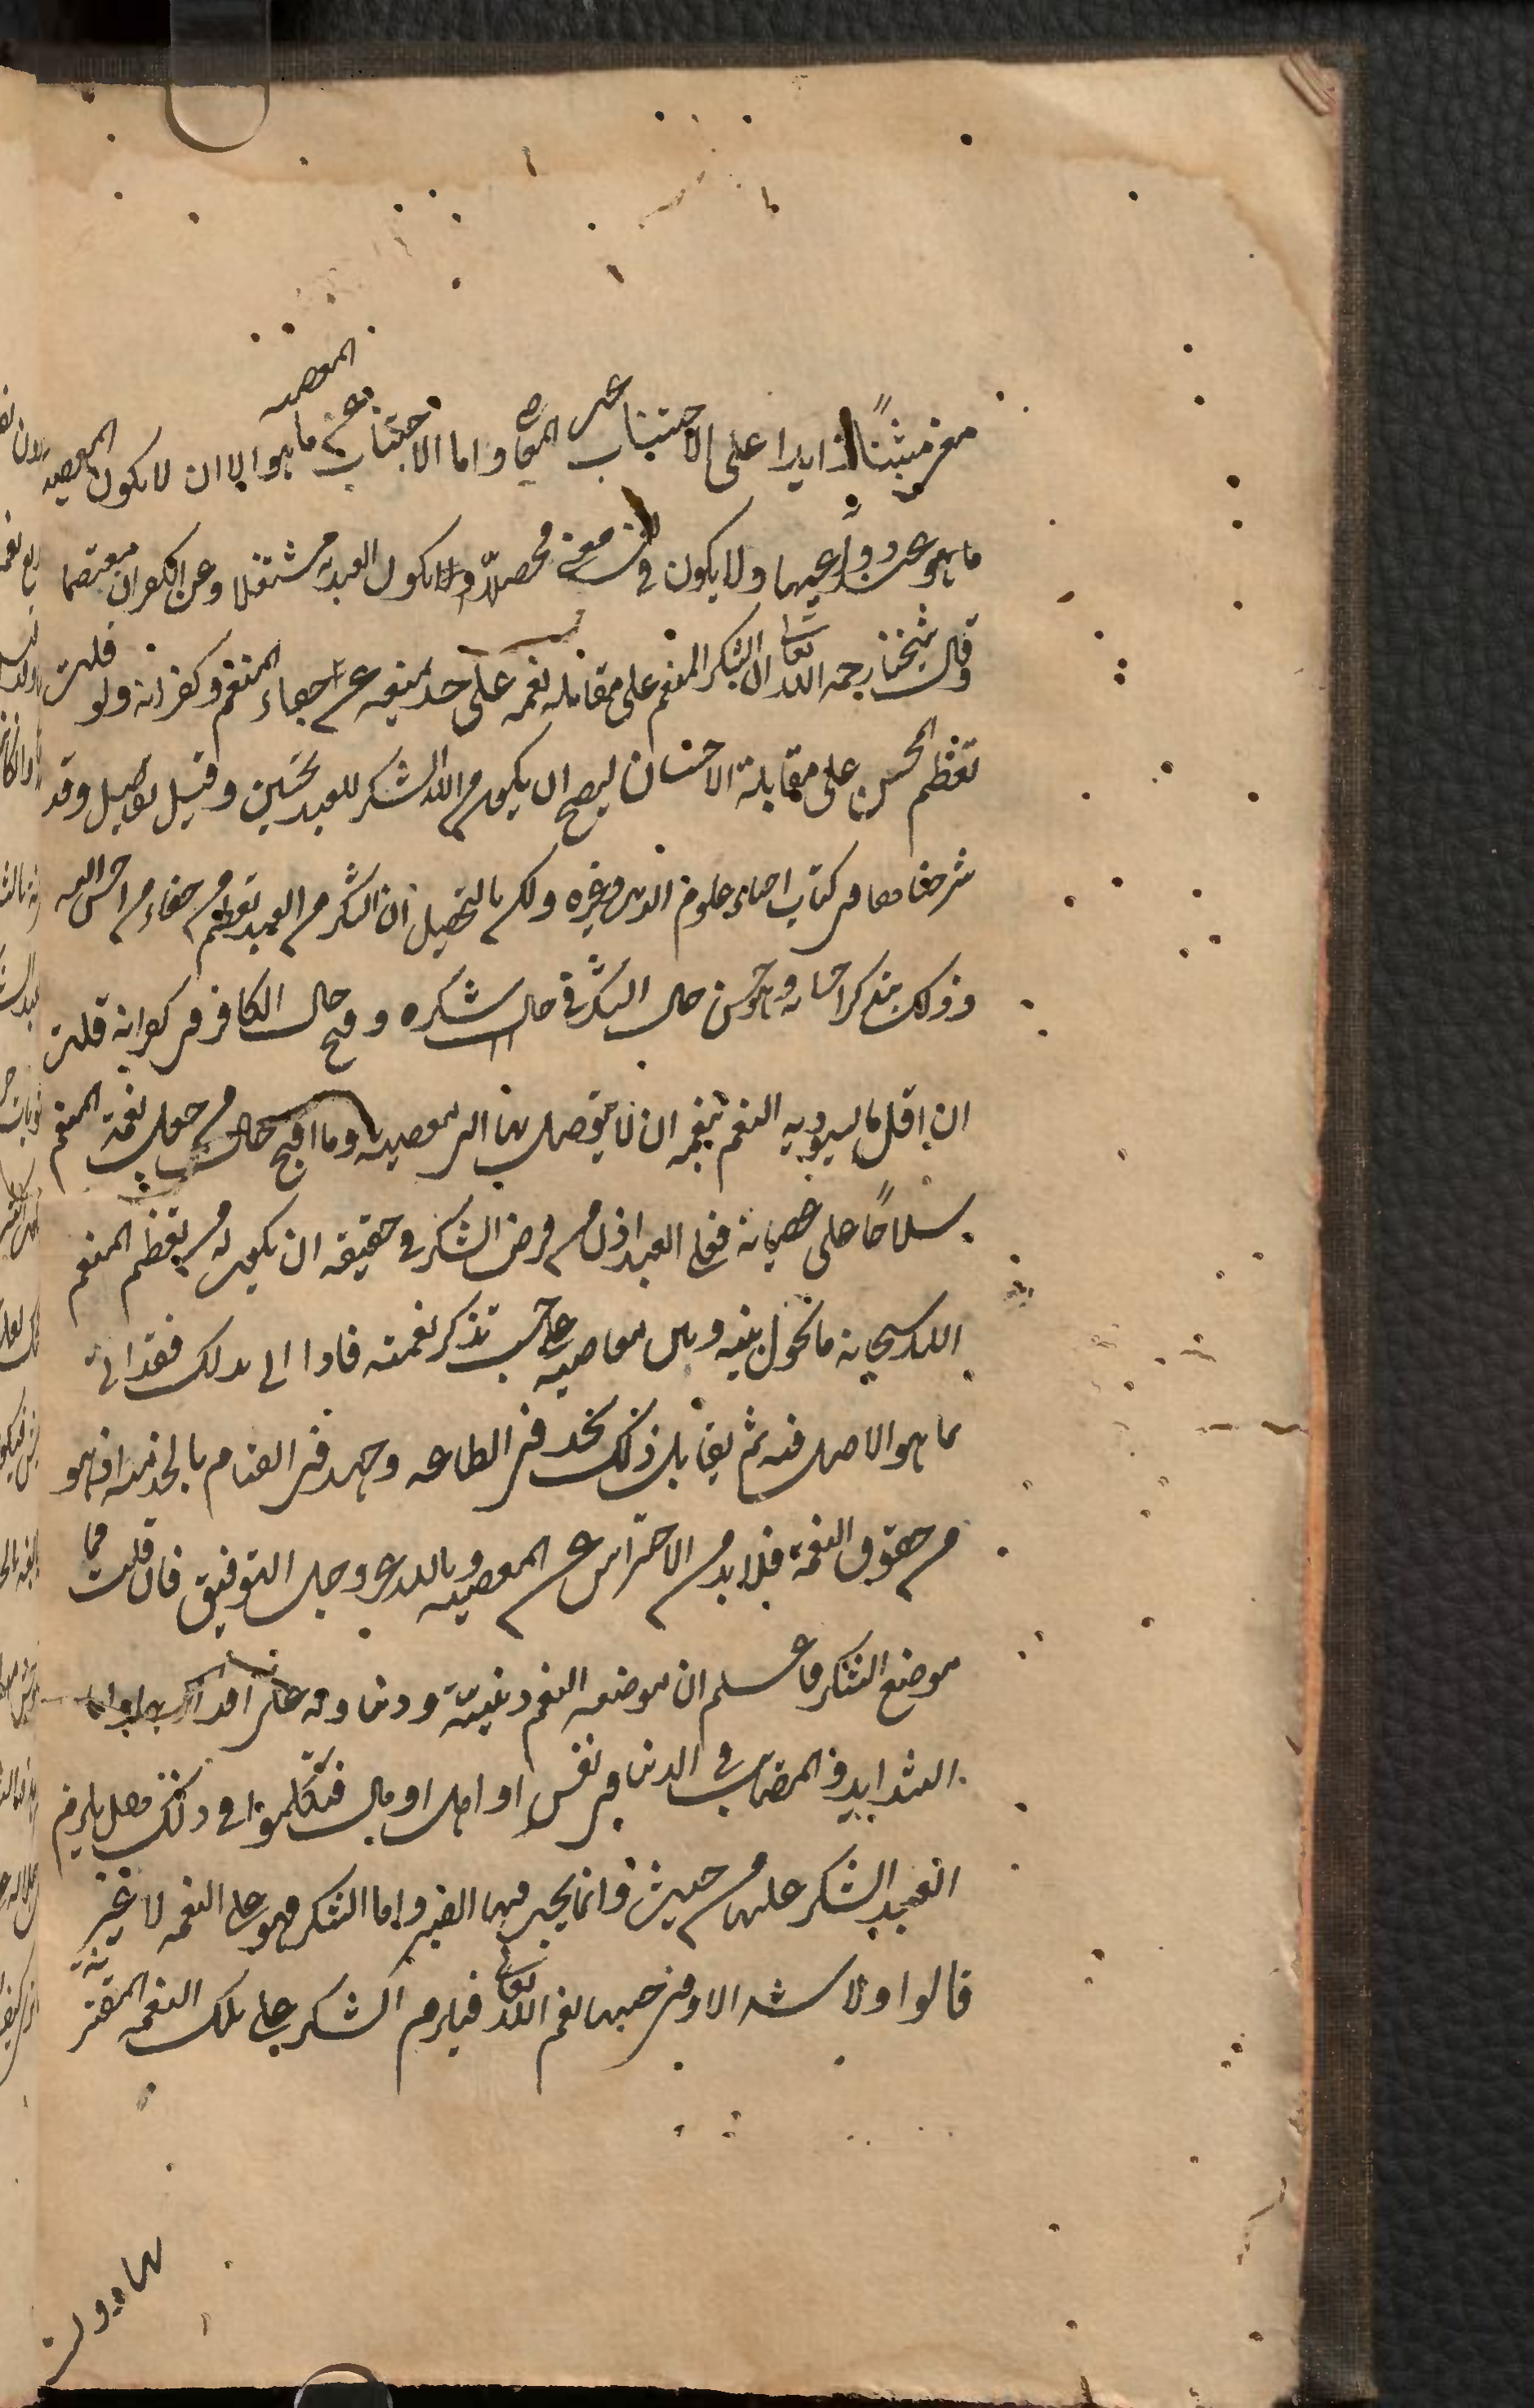 المعصيه
معنى مثبتا زايدا على الاجتناب عن المعاصى واما الاجتناب عن ما هو الا ان لا يكون المعصيه
ما هو عند دواعيها ولا يكون فى نفسه معنى محصلا ولا يكون العبد به مشتغلا وعن الكفران معتصما
وقال شيخنا رحمه الله تعالى ان الشكر المنعم على مقابله نعمه على حد يمنعه عن جفاء المنعم وكفرانه ولو قلت
تعظم المحسن على مقابلة الاحسان ليصح ان يكون من الله الشكر للعبد لحسن وقيل تفاصيل وقد
شرحناها فى كتاب احياء علوم الدين وغيره ولكن بالتحصيل ان الشكر من العبد تعظم من جفاء من احسن اليه
وذلك بتذكر احسانه وحسن حال الشاكر فى حال شكره وقبح حال الكافر فى كفرانه قلت
ان اقل ما يستوجبه المنعم بنعمه ان لا يتوصل بها الى معصيه وما اقبح حال من جعل نعمة المنعم
سلاحا على عصيانه فعلى العبد اذن من فرض الشكر فى حقيقه ان يكون له من تعظم المنعم
الله سبحانه ما يحول بينه وبين معاصيه على حسب تذكر نعمته فاذا اتى بذلك فقد اتى
بما هو الاصل فيه ثم يقابل ذلك بجد فى الطاعه وجهد فى القيام بالخدمه اذ هو
من حقوق النعمة فلا بد من الاحتراس عن المعصيه وبالله عز وجل التوفيق فان قلت فما
موضع الشكر فاعلم ان موضعه النعم دينية ودنياويه على اقدارها واما
الشدايد والمصايب فى الدنيا فى نفس او اهل او مال فتكلموا فى ذلك هل يلزم
العبد الشكر عليها من حيث وانما يجب فيها الصبر واما الشكر فهو على النعم لا غير
قالوا ولا شده الا وفى جنبها نعم الله تعالى فيلزم الشكر على تلك النعمه المقترنة
بها دون